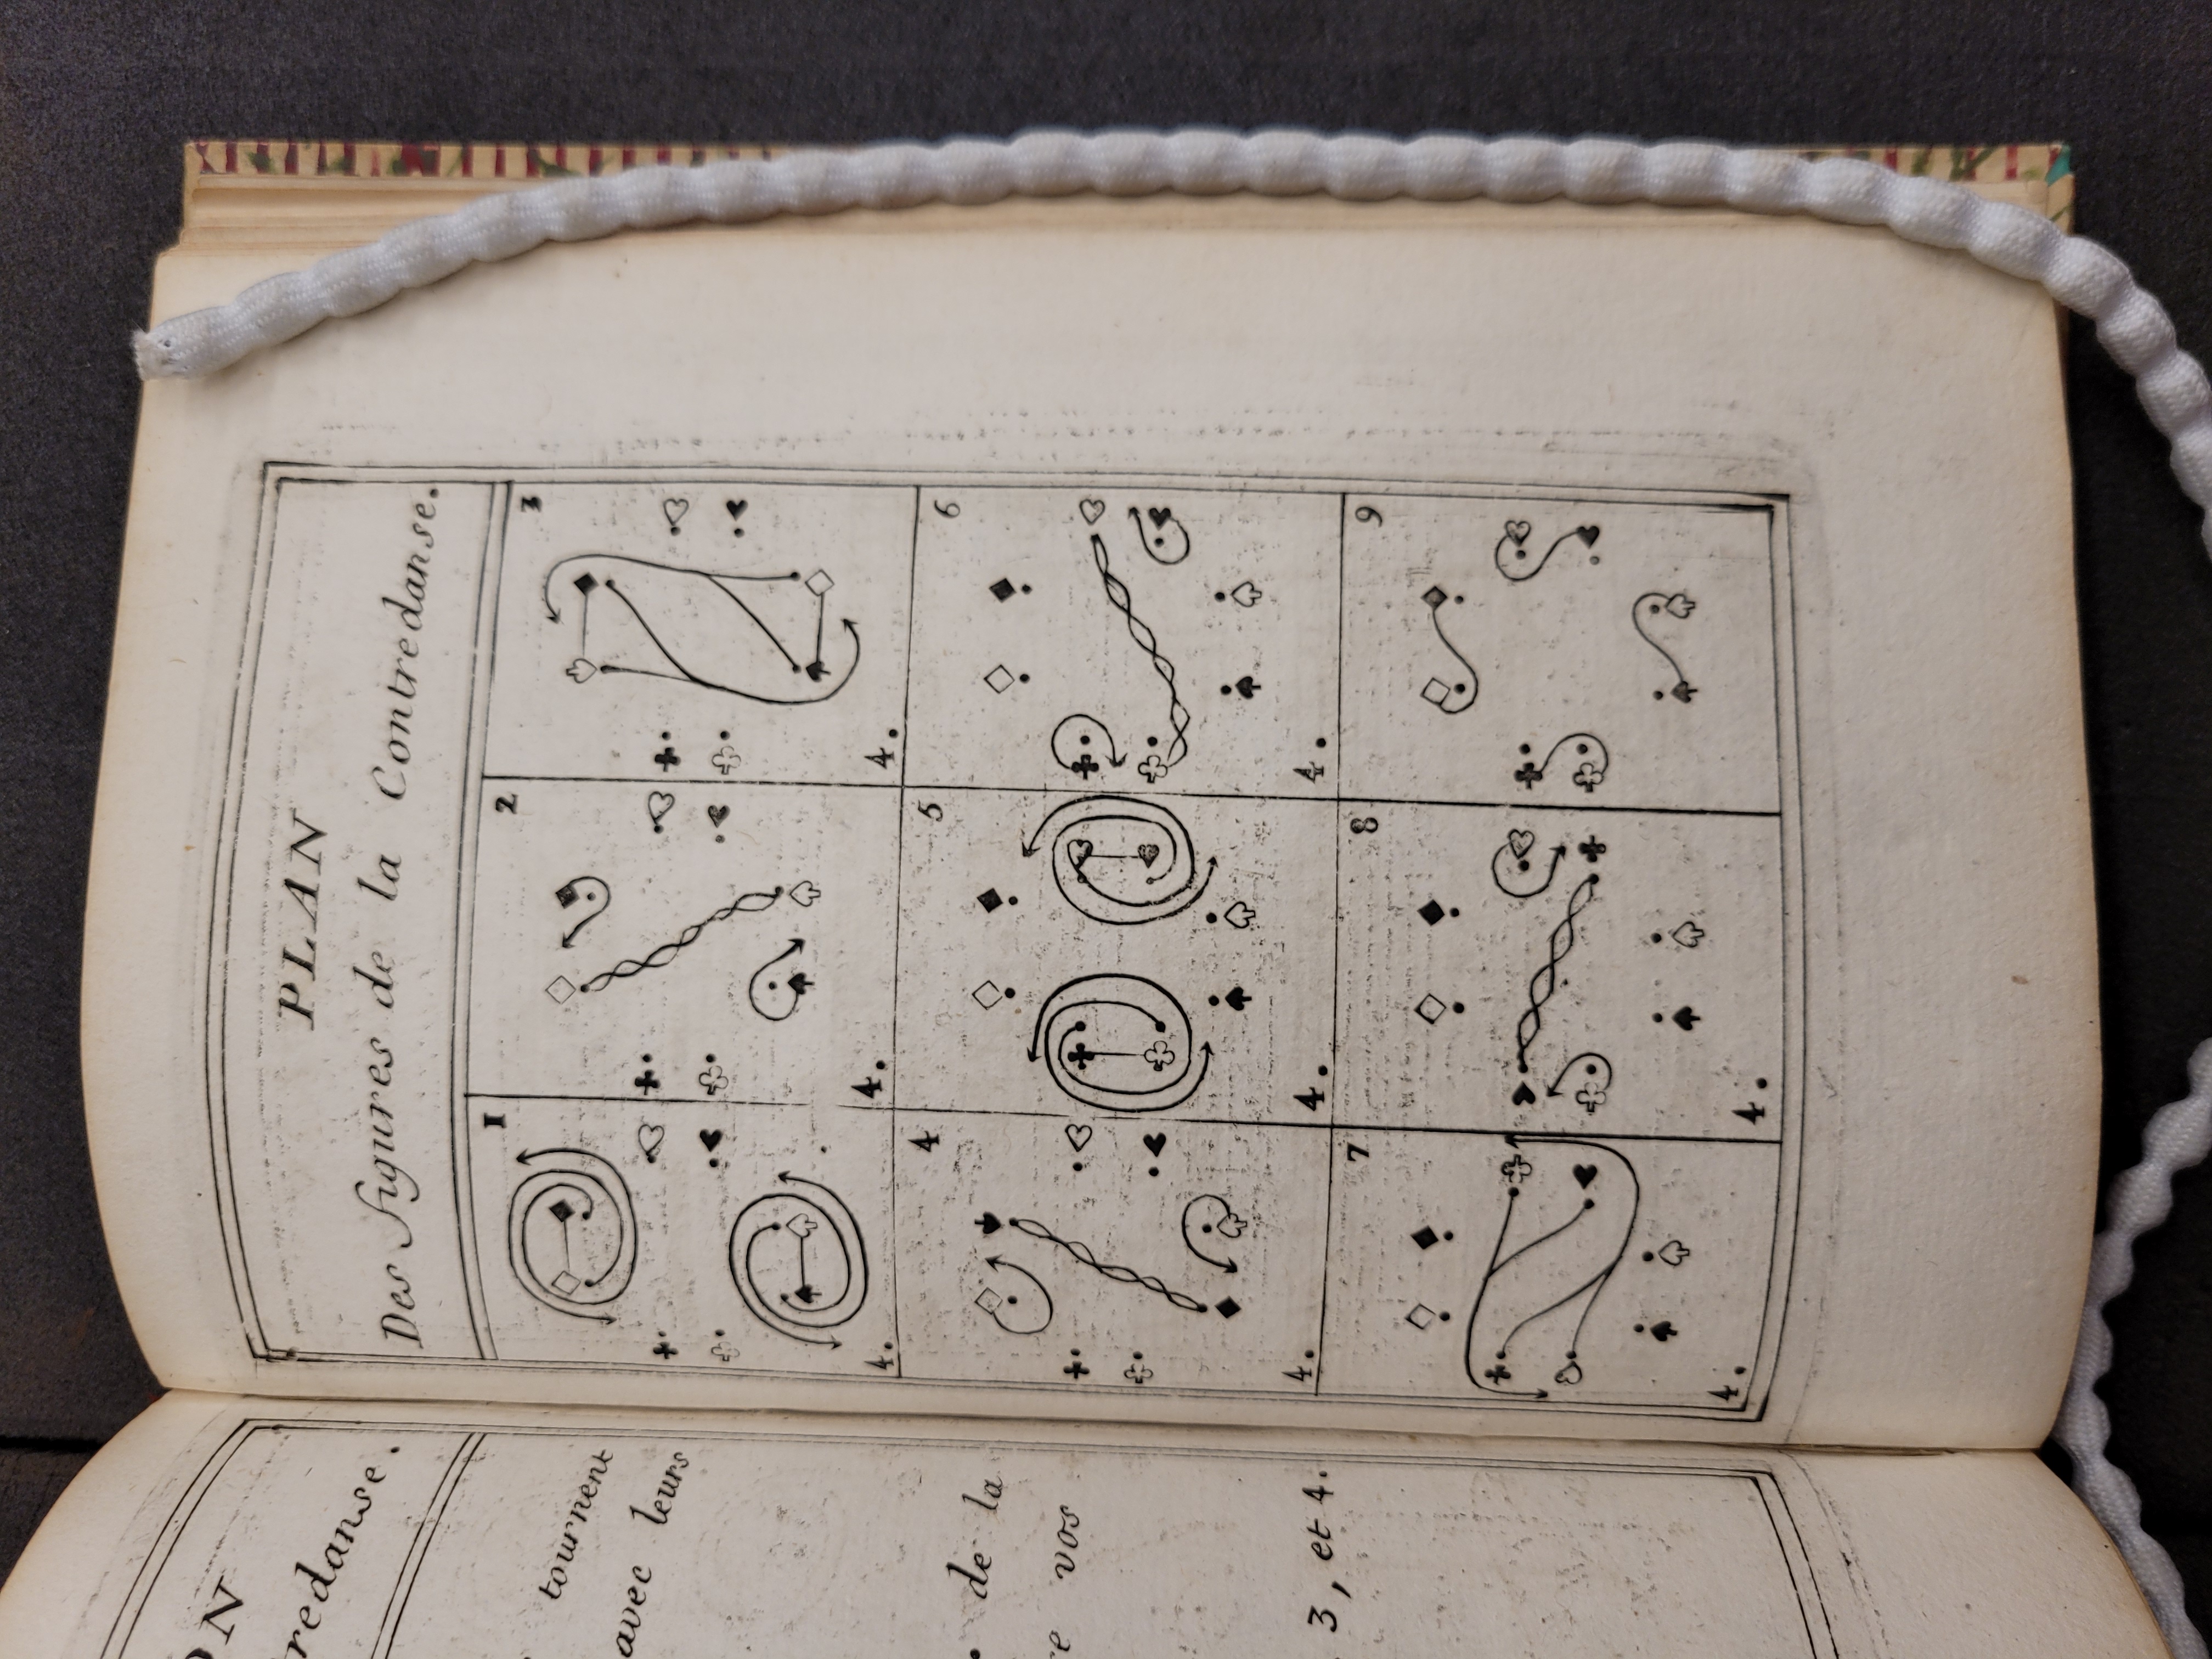 ON
redanse.
tournent
avec leurs
de la
re vos
3, et 4.
PLAN
Des figures de la Contredanse.
1 2 3
4. 4. 4.
4 5 6
4. 4. 4.
7 8 9
4. 4.